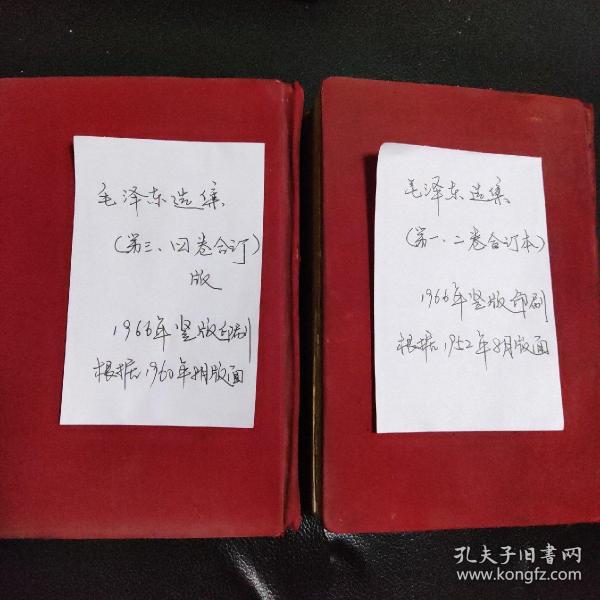 毛泽东选集
（第三、四卷合订）
版
1966年竖版印刷
根据1960年8月版面
毛泽东选集
（第一、二卷合订本）
1966年竖版印刷
根据1952年8月版面
孔夫子旧书网
www.kongfz.com